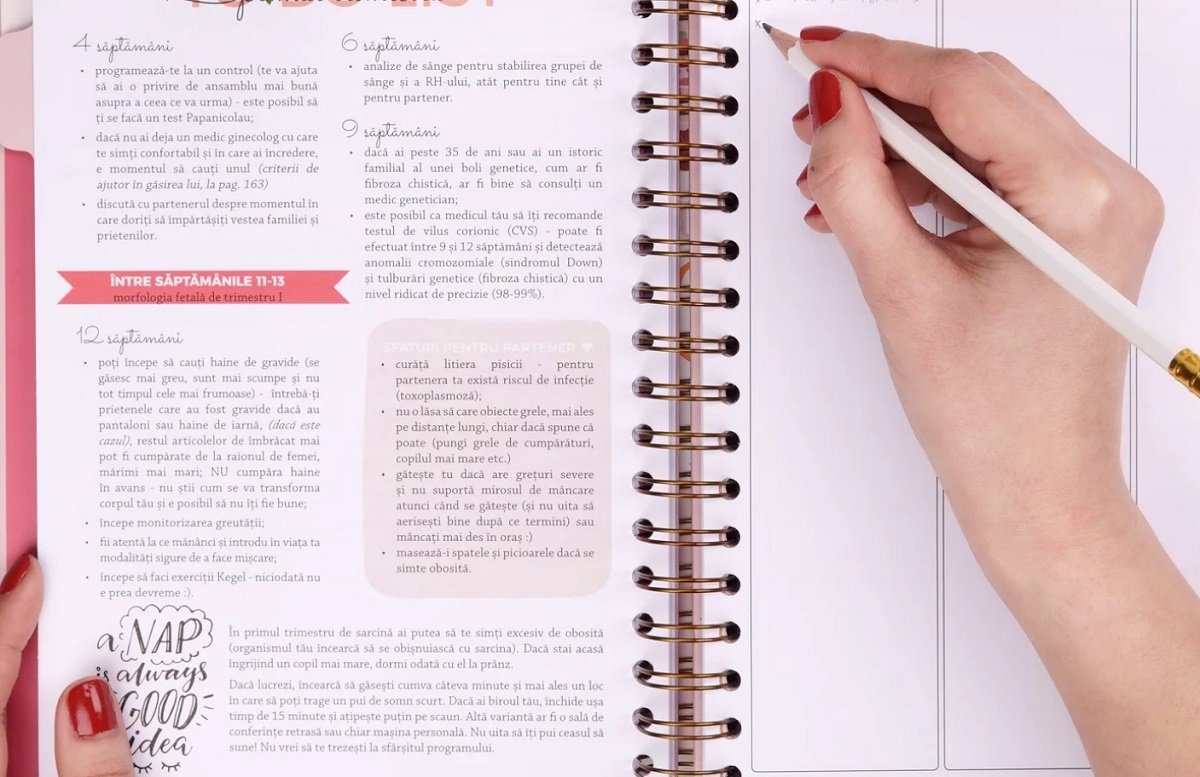 4 săptămâni
• programează-te la un control - te va ajuta
să ai o privire de ansamblu mai bună
asupra a ceea ce va urma - e posibil să
faci și un test Papanicolau;
• dacă nu ai deja un medic ginecolog cu care
te simți confortabil și în care ai încredere,
e momentul să cauți unul (criterii de
ajutor în găsirea lui, la pag. 163)
• discută cu partenerul despre momentul în
care doriți să împărtășiți vestea familiei și
prietenilor.
ÎNTRE SĂPTĂMÂNILE 11-13
morfologia fetală de trimestru I
12 săptămâni
• poți începe să cauți haine de gravide (se
găsesc mai greu, sunt mai scumpe și nu
tot timpul cele mai frumoase) - întreabă-ți
prietenele care au fost însărcinate dacă au
pantaloni sau haine de iarnă (dacă este
cazul), restul articolelor de îmbrăcat mai
pot fi cumpărate de la raionul de femei,
mărimi mai mari; NU cumpăra haine
în avans - nu știi cum se va transforma
corpul tău și e posibil să nu îți vină bine;
• începe monitorizarea greutății;
• fii atentă la alimentație și introdu în viața ta
modalități ușoare de a face mișcare;
• începe să faci exerciții Kegel - niciodată nu
e prea devreme :).
6 săptămâni
• analize de sânge pentru stabilirea grupei de
sânge și a RH-ului, atât pentru tine cât și
pentru partener.
9 săptămâni
• dacă ai peste 35 de ani sau ai un istoric
familial al unei boli genetice, cum ar fi
fibroza chistică, ar fi bine să consulți un
genetician;
• e posibil ca medicul tău să îți recomande
testul de vilus corionic (CVS) - poate fi
făcut între 9 și 12 săptămâni și detectează
anomalii cromozomiale (sindromul Down)
și tulburări genetice (fibroza chistică) cu un
grad mare de precizie (98-99%).
SFATURI PENTRU PARTENER
• curăță litiera pisicii - pentru
partenera ta există riscul de infecție
• ajut-o să care obiecte grele, mai ales
pe distanțe lungi, chiar dacă spune că
poate (pungi grele de cumpărături,
copilul mai mare etc.)
• gătește tu dacă are grețuri severe
sau nu suportă mirosul de mâncare
atunci când se gătește (și nu uita să
aerisești bine după ce termini) sau
• masează-i spatele și picioarele dacă se
simte obosită.
a NAP
always
GOOD
idea
Primul trimestru de sarcină te poate face să te simți excesiv de obosită
(organismul tău încearcă să se obișnuiască cu sarcina). Dacă stai acasă
îngrijind un copil mai mare, dormi odată cu el la prânz.
Dacă lucrezi, încearcă să găsești cumva câteva minute și mai ales un loc
în care să poți trage un pui de somn scurt. Dacă ai biroul tău, închide ușa
timp de 15 minute și ațipește puțin pe scaun. Altă variantă ar fi o sală de